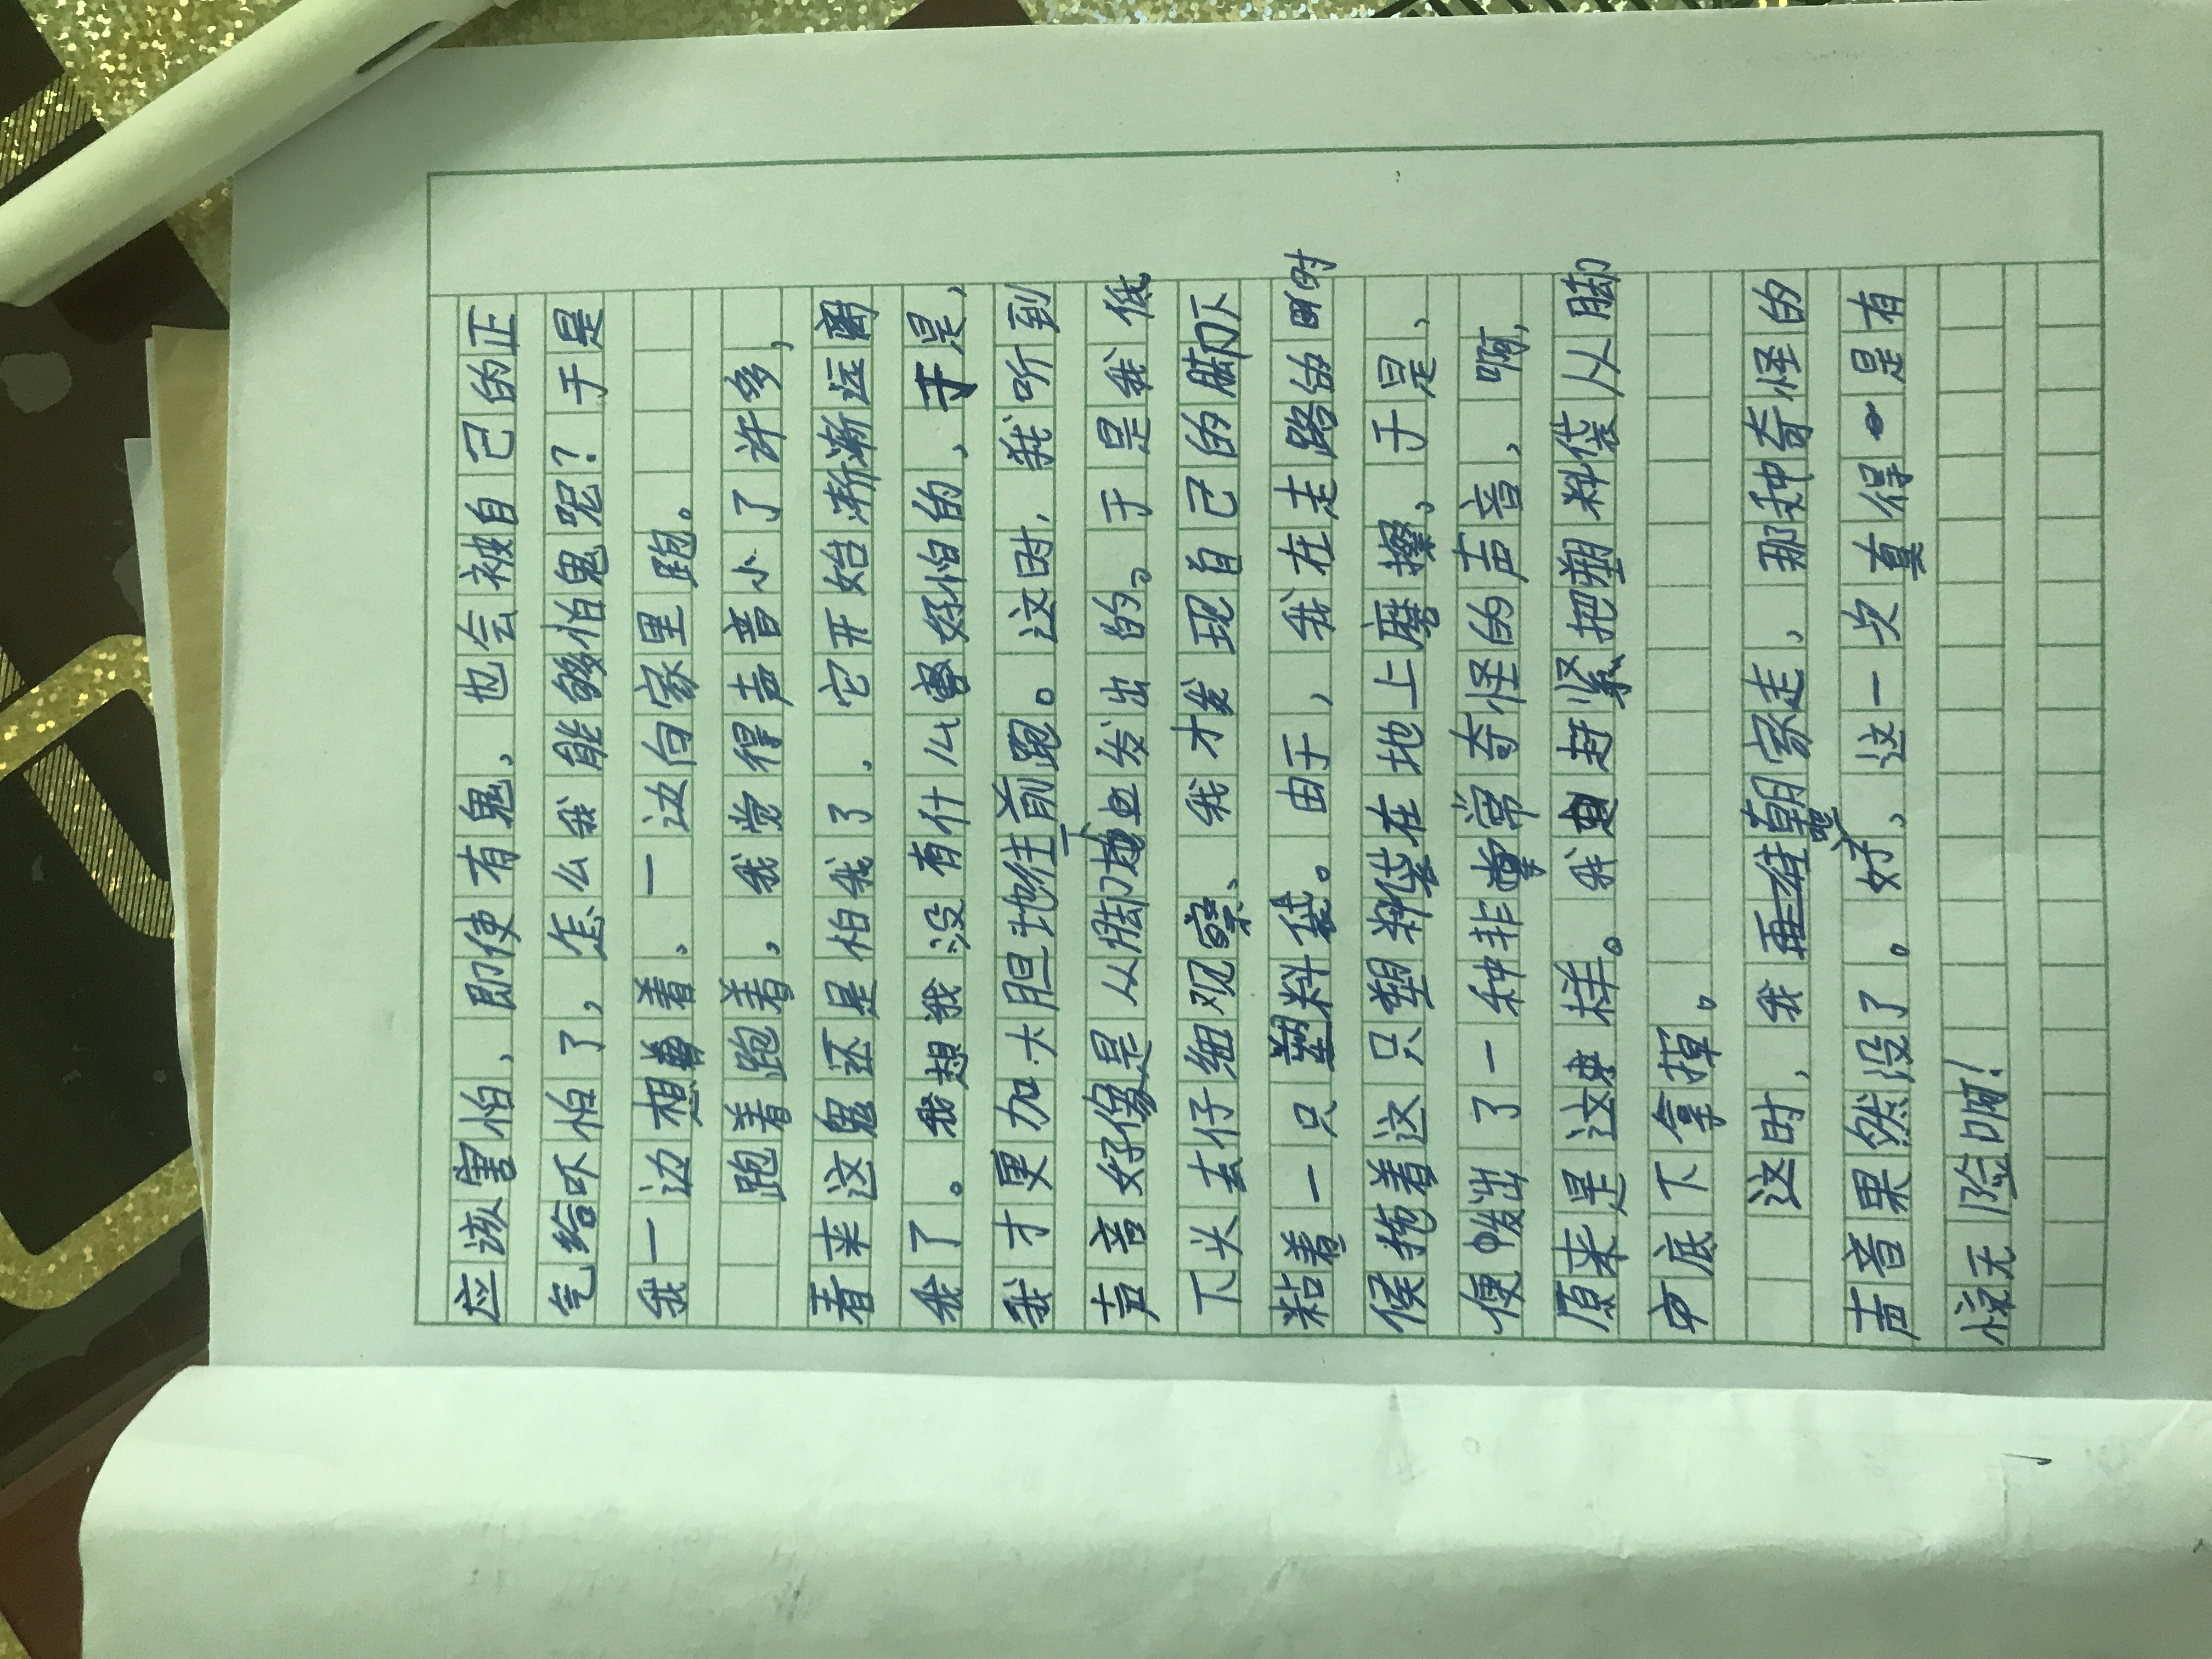 应该害怕，即使有鬼，也会被自己的正
气给吓怕了，怎么我能够怕鬼呢？于是
我一边想着，一边向家里跑。
跑着跑着，我觉得声音小了许多，
看来这鬼还是怕我了，它开始渐渐远离
我了。我想我没有什么好怕的，于是，
我才更加大胆地往前跑。这时，我听到
声音好像是从脚上发出的。于是我低
下头去仔细观察，我才发现自己的脚下
粘着一只塑料袋。由于，我在走路的时
候拖着这只塑料袋在地上磨擦，于是，
便发出了一种非常奇怪的声音，啊，
原来是这样。我赶紧把塑料袋从脚
底下拿掉。
这时，我再往朝家走，那种奇怪的
声音果然没了。好，这一次真得是有
惊无险啊！